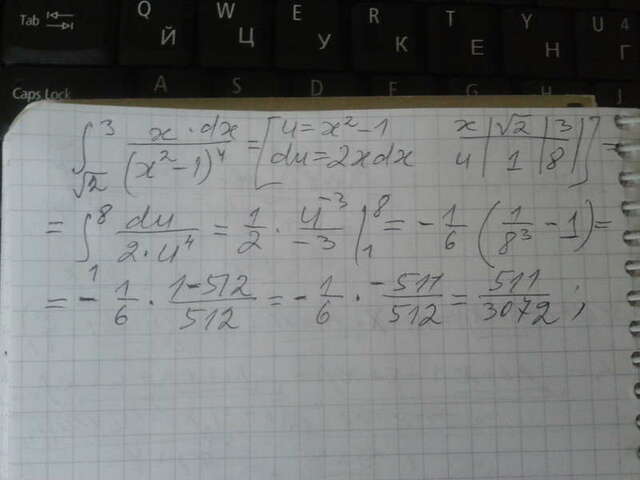 Tab Q W E R T Y U 4
Й Ц У К Е Н Г
Caps Lock A S D F G H J
∫_{√2}^{3} x·dx/(x²-1)⁴ = [u=x²-1 x | √2 | 3
du=2xdx u | 1 | 8 |] =
= ∫_{1}^{8} du/2·u⁴ = 1/2 · u⁻³/-3 |₁⁸ = -1/6 (1/8³ - 1) =
= -1/6 · 1-512/512 = -1/6 · -511/512 = 511/3072 ;